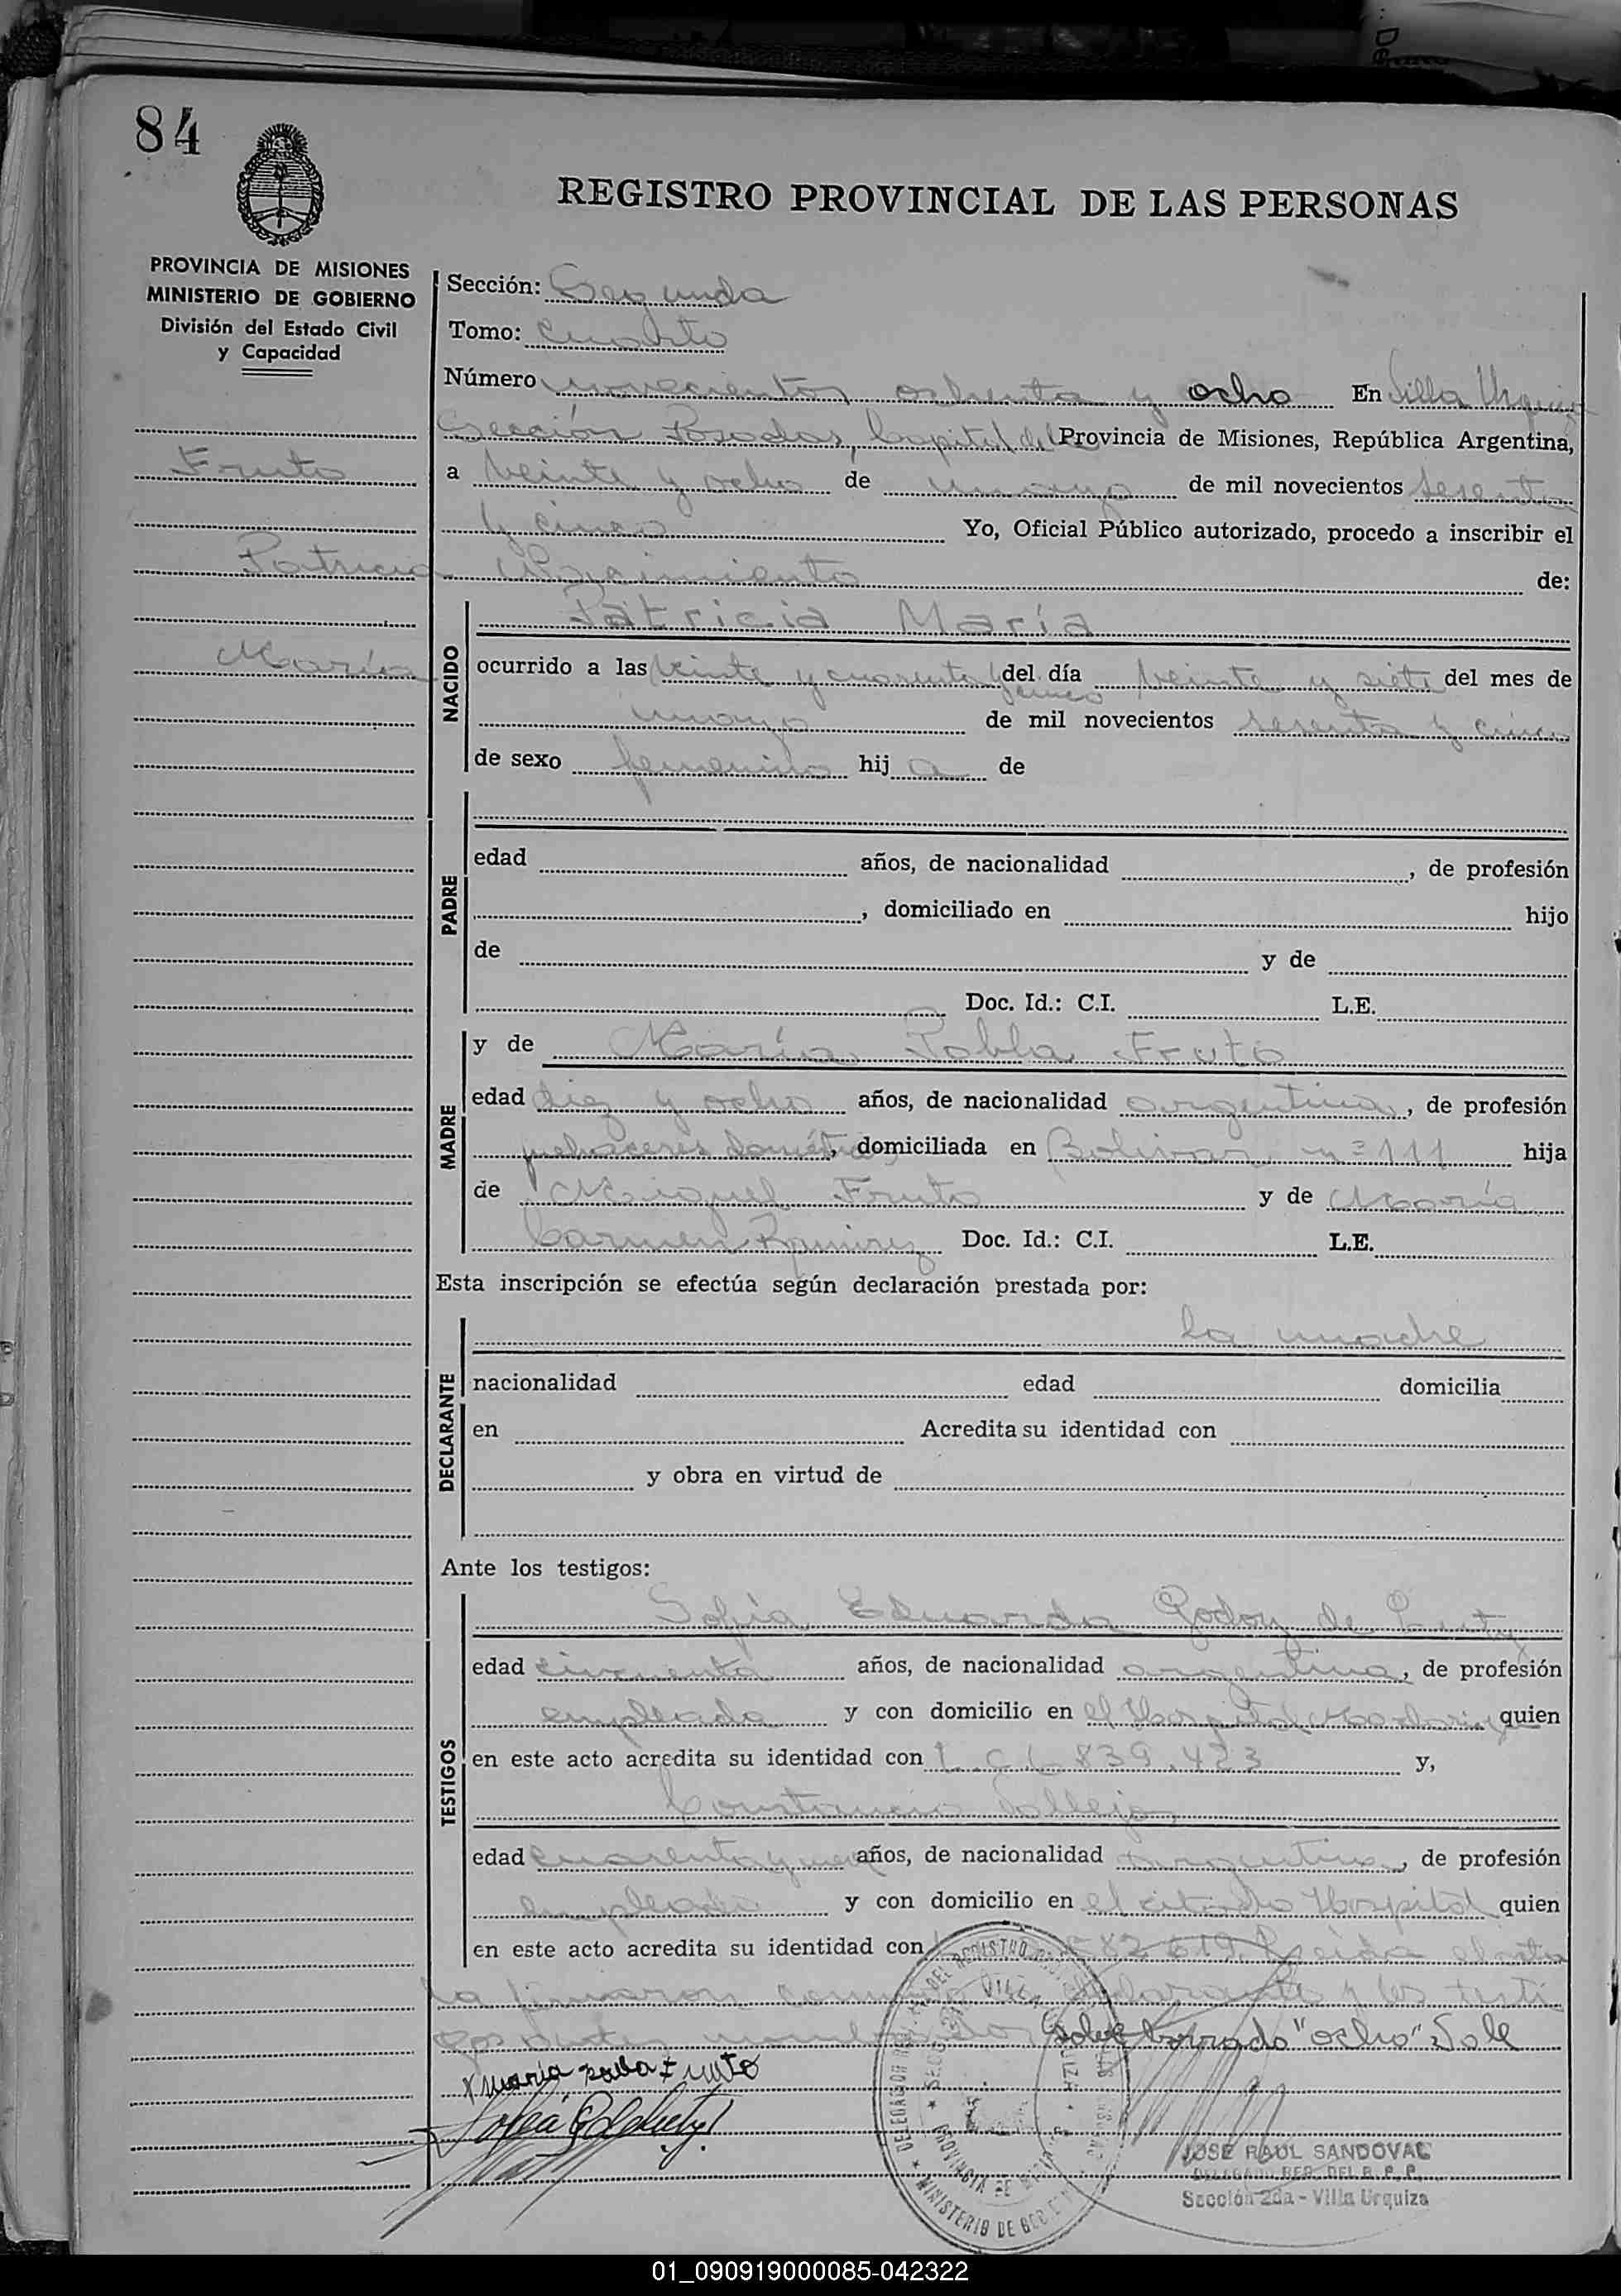 84
REGISTRO PROVINCIAL DE LAS PERSONAS
PROVINCIA DE MISIONES
MINISTERIO DE GOBIERNO
División del Estado Civil
y Capacidad
Sección: Segunda
Tomo: Cuarto
Número novecientos ochenta y ocho En Villa Urquiza
Sección Posadas, Capital de Provincia de Misiones, República Argentina,
Fruto
a veinte y ocho de mayo de mil novecientos sesenta
y cinco Yo, Oficial Público autorizado, procedo a inscribir el
Patricia
Nacimiento de:
María
NACIDO
Patricia María
ocurrido a las veinte y cuarenta y cinco del día veinte y siete del mes de
mayo de mil novecientos sesenta y cinco
de sexo femenino hij a de
PADRE
edad años, de nacionalidad , de profesión
, domiciliado en hijo
de y de
Doc. Id.: C.I. L.E.
MADRE
y de María Pabla Fruto
edad diez y ocho años, de nacionalidad argentina, de profesión
quehaceres domést, domiciliada en Bolivar nº 111 hija
de Miguel Fruto y de María
Carmen Ramirez Doc. Id.: C.I. L.E.
Esta inscripción se efectúa según declaración prestada por:
la madre
DECLARANTE
nacionalidad edad domicilia
en Acredita su identidad con
y obra en virtud de
Ante los testigos:
TESTIGOS
Sofía Eduarda Godoy de
edad cincuenta años, de nacionalidad argentina, de profesión
empleada y con domicilio en el Hospital Madariaga quien
en este acto acredita su identidad con L.C. 6.839.423 y,
Constancio Vallejos
edad cuarenta y años, de nacionalidad argentino, de profesión
empleado y con domicilio en el citado Hospital quien
en este acto acredita su identidad con 582619. Leida el acta
la firmaron declarante y los testi
gos antes nombrados Sobre borrado "ocho" Vale
x maria pabla Fruto
JOSE RAUL SANDOVAL
DELEGADO REG. DEL R. P. P.
Sección 2da - Villa Urquiza
01_090919000085-042322